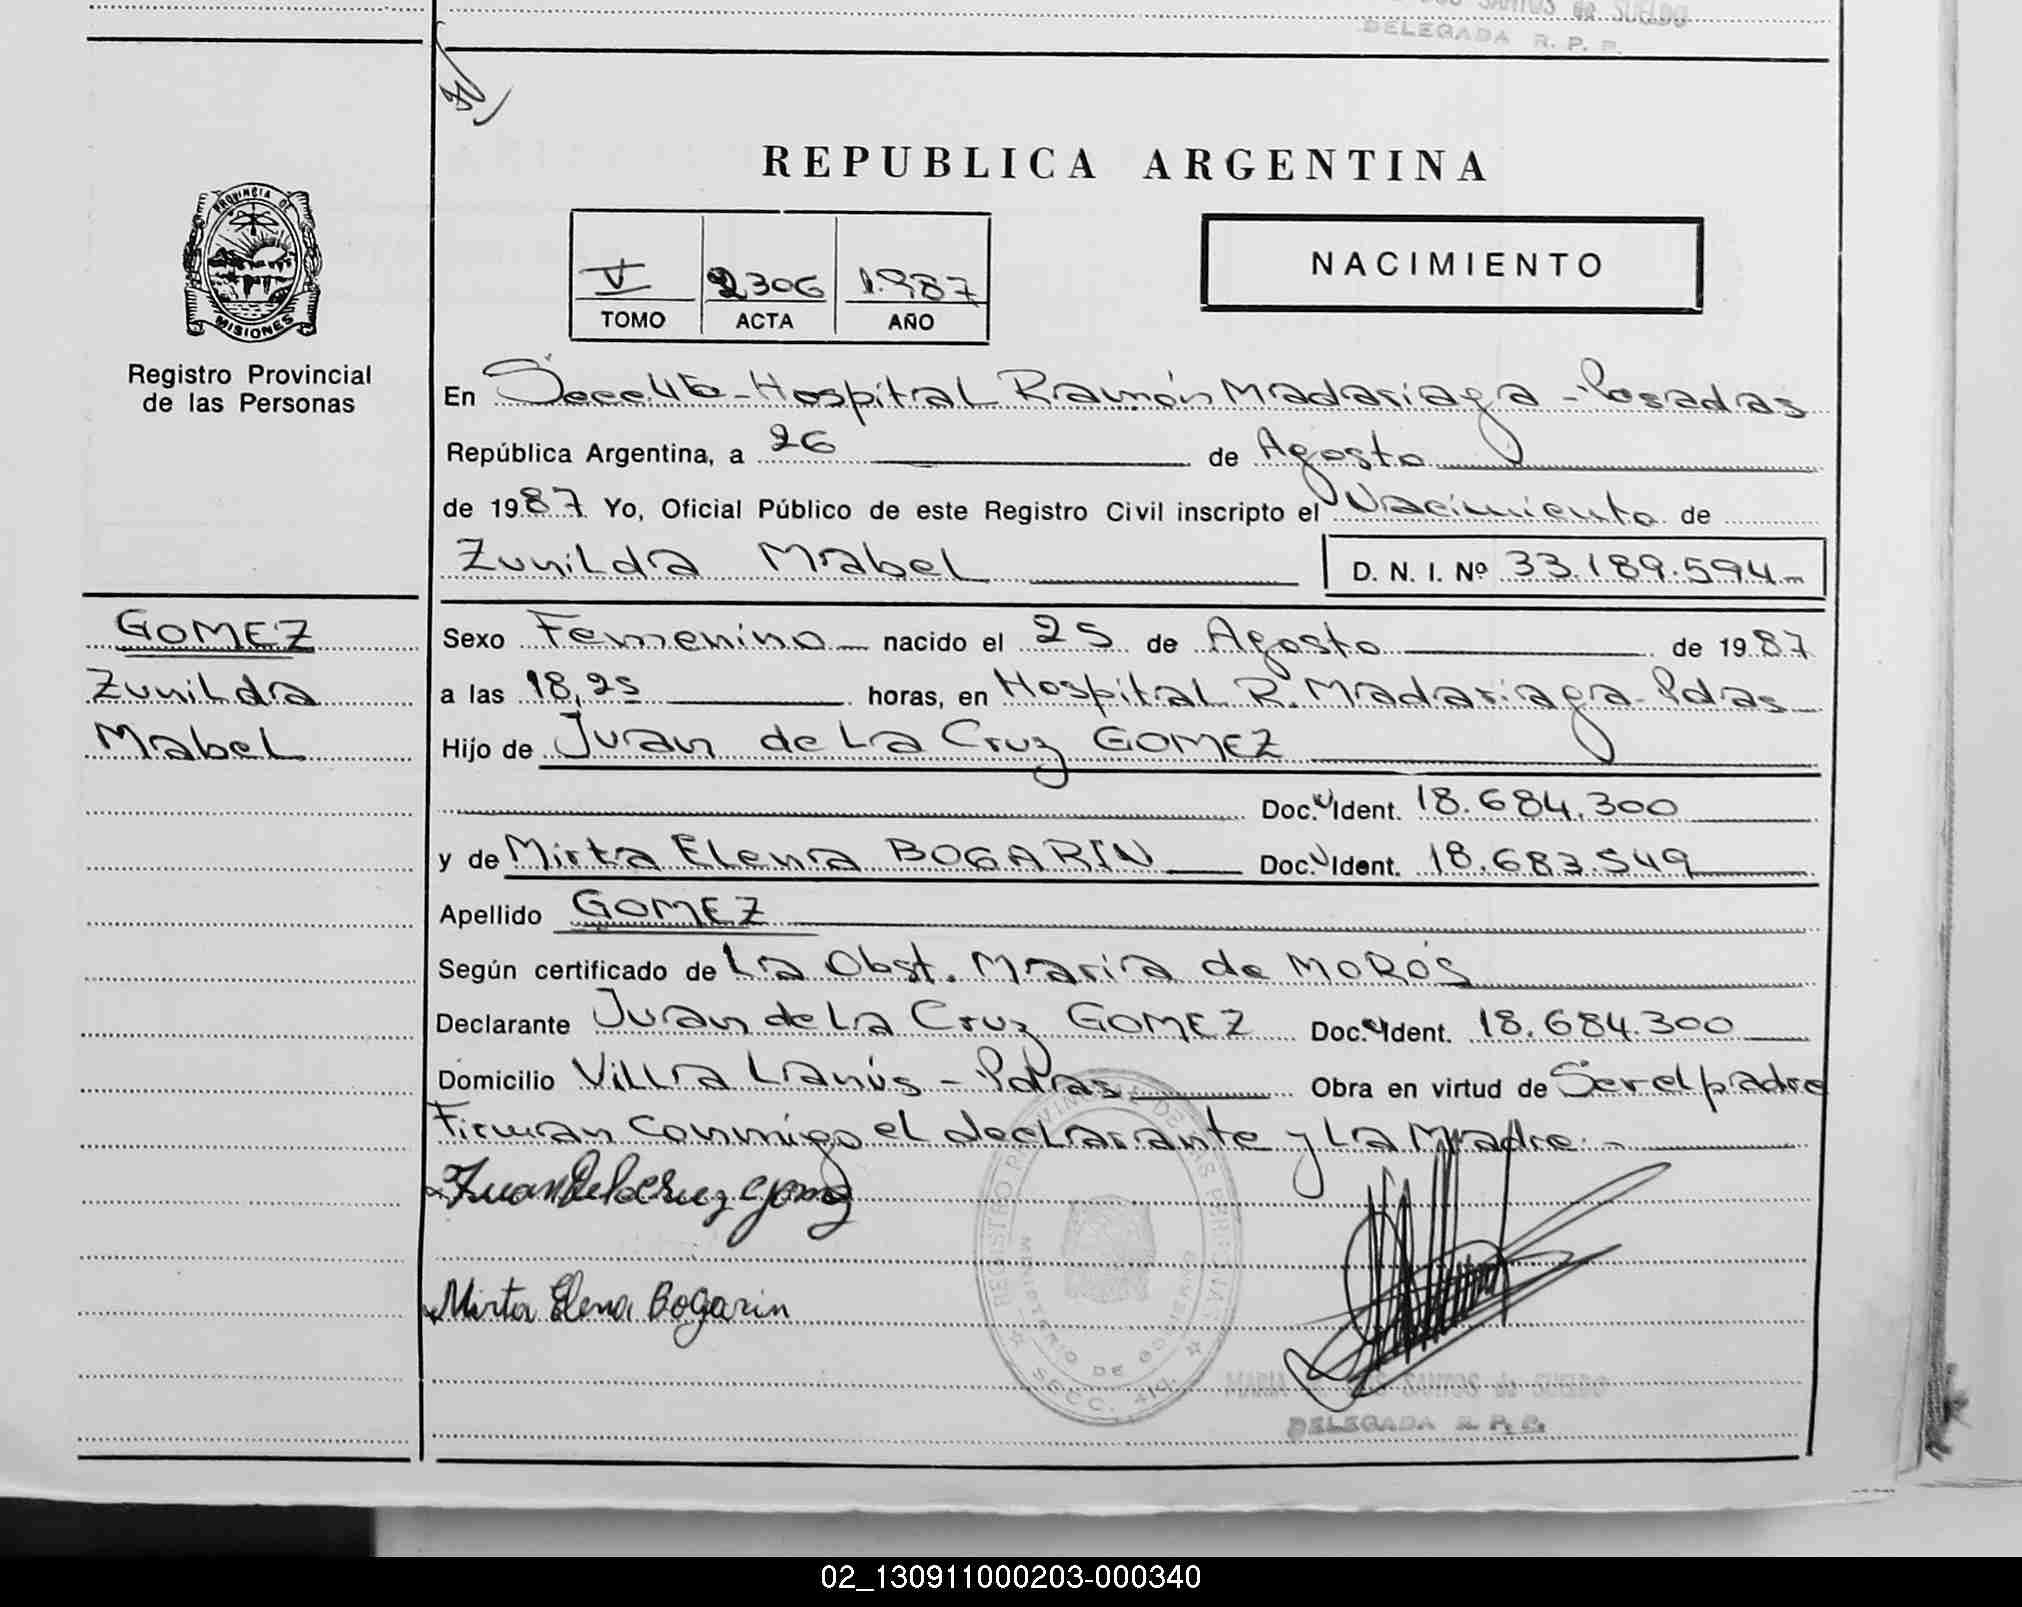 SANTOS de SUELDO
DELEGADA R. P. P.
REPUBLICA ARGENTINA
PROVINCIA DE
MISIONES
Registro Provincial
de las Personas
V 2306 1.987
TOMO ACTA AÑO
NACIMIENTO
En Secc 4ta - Hospital Ramón Madariaga - Posadas
República Argentina, a 26 de Agosto
de 1987 Yo, Oficial Público de este Registro Civil inscripto el Nacimiento de
Zunilda Mabel D. N. I. Nº 33.189.594
GOMEZ
Zunilda
Mabel
Sexo Femenino nacido el 25 de Agosto de 1987
a las 18,25 horas, en Hospital R. Madariaga - Pdas
Hijo de Juan de La Cruz GOMEZ
Doc. Ident. 18.684.300
y de Mirta Elena BOGARIN Doc. Ident. 18.683.549
Apellido GOMEZ
Según certificado de La Obst. María de MORÓS
Declarante Juan de La Cruz GOMEZ Doc. Ident. 18.684.300
Domicilio Villa Lanús - Pdas Obra en virtud de Ser el padre
Firman conmigo el declarante y La Madre.-
Juan De la cruz gomez
Mirta Elena Bogarin
REGISTRO PROVINCIAL DE LAS PERSONAS
MINISTERIO DE GOBIERNO
SECC. 4ta.
MARIA SANTOS de SUELDO
DELEGADA R. P. P.
02_130911000203-000340